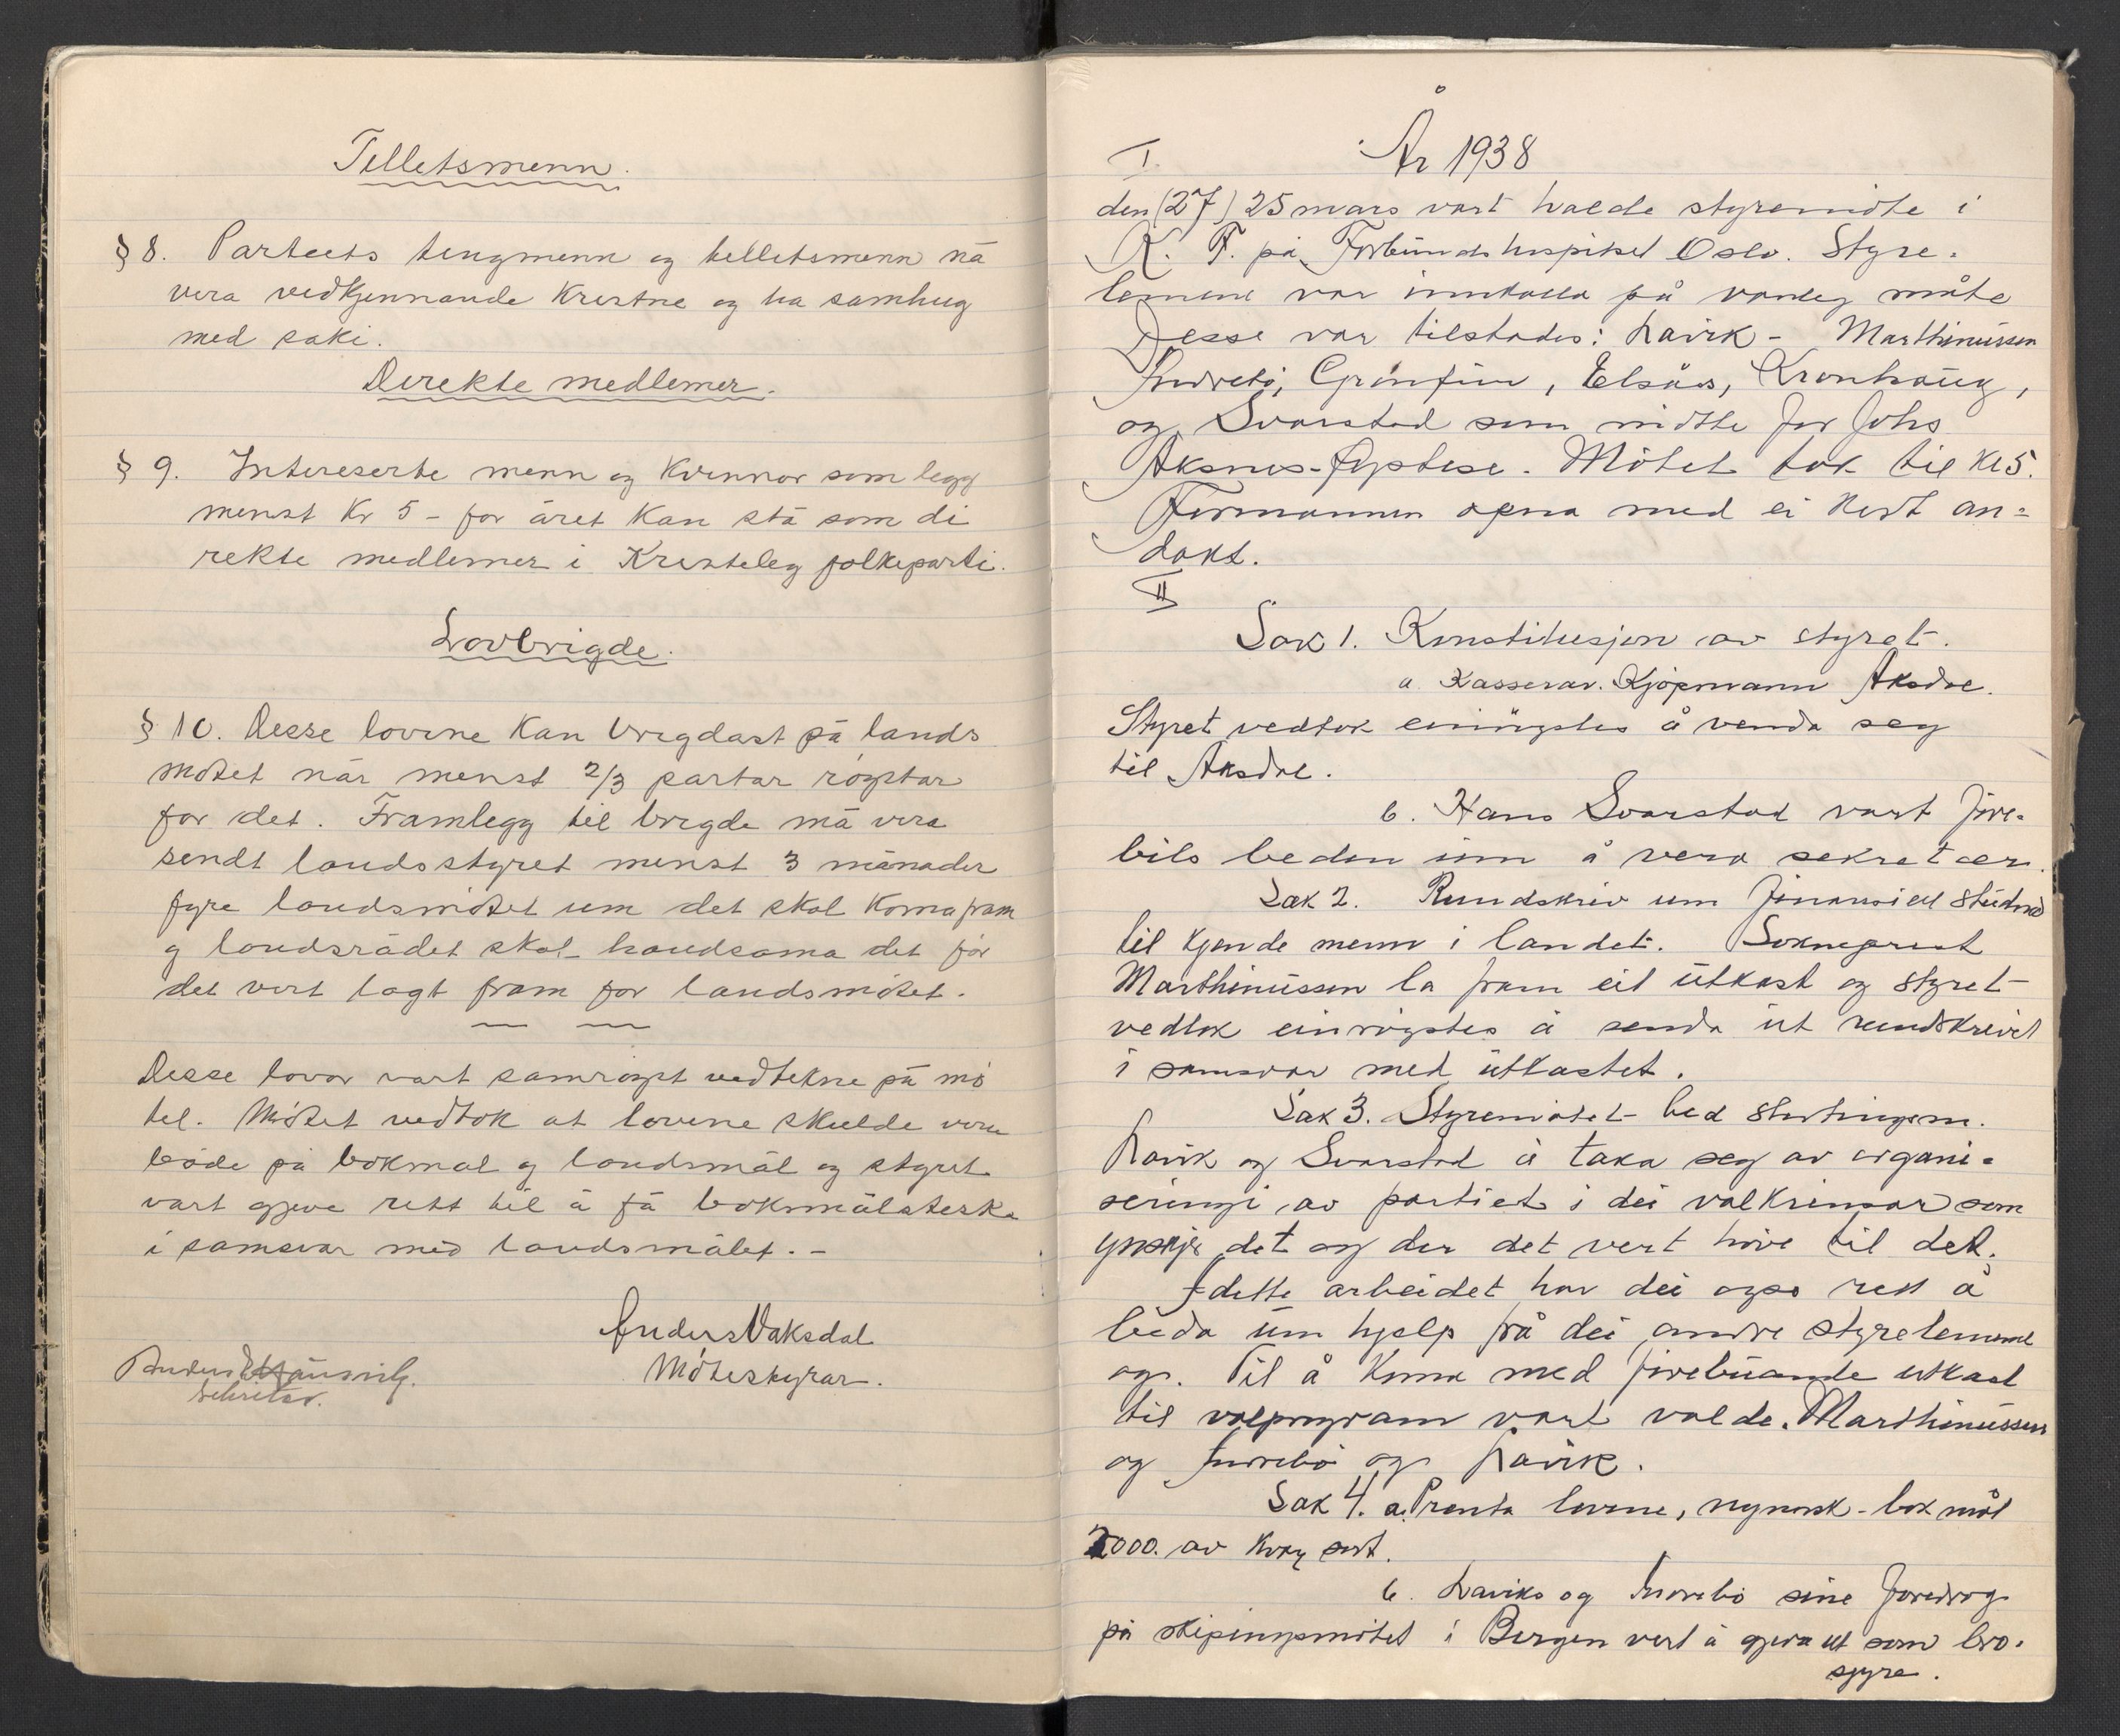 Tillitsmenn.
§ 8. Partiets tingmenn og tillitsmenn må
vera vedkjennande kristne og ha samhug
med saki.
Direkte medlemer.
§ 9. Intereserte menn og kvinnor som legg
minst kr 5 - for året kan stå som di
rekte medlemer i Kristeleg folkeparti.
Lovbrigde.
§ 10. Desse lovene kan brigdast på lands
møtet når minst 2/3 partar røystar
for det. Framlegg til brigde må vera
sendt landsstyret minst 3 månader
fyre landsmøtet um det skal koma fram
og landsrådet skal handsama det før
det vert lagt fram for landsmøtet.
Desse lovor vart samrøyst vedtekne på mø
tet. Møtet vedtok at lovene skulde vera
både på bokmål og landsmål og styret
vart gjeve rett til å få bokmålsteksta
i samsvar med landsmålet. -
Anders Vaksdal
Møtestyrar.
Anders
sekretær.
År 1938
I.
den (27) 25 mars vart halde styremøte i
K. F. på Forbundshospitset Oslo. Styre-
lemene var innkalla på vanleg måte
Desse var tilstades: Lavik - Marthinussen
Indrebø, Elsås, Kronhaug,
og Svarstad som møtte for Johs
Aksnes. Møtet tok til kl 5.
Formannen opna med ei kort an-
dakt.
II
Sak 1. Konstitusjon av styret.
a. Kasserar. Kjøpmann Aksdal.
Styret vedtok einrøystes å venda seg
til Aksdal.
b. Hans Svarstad vart fyre-
bils beden um å vera sekretær.
Sak 2. Rundskriv um finansiell studnad
til kjende menn i landet. Sokneprest
Marthinussen la fram eit utkast og styret
vedtok einrøystes å senda ut rundskrivet
i samsvar med utkastet.
Sak 3. Styremøtet bad stortingsm.
Lavik og Svarstad å taka seg av organi-
seringi av partiet i dei valkrinsar som
ynskjer det og der det vert høve til det.
I dette arbeidet har dei ogso rett å
beda um hjelp frå dei andre styrelemene
og. Til å koma med fyrebuande utkast
til valprogram vart valde. Marthinussen
og Indrebø og Lavik.
Sak 4. a. Prenta lovene, nynorsk - bokmål
2000. av kvar sort.
b. Laviks og Indrebø sine foredrag
på skipingsmøtet i Bergen vert å gjeva ut som bro-
sjyre.